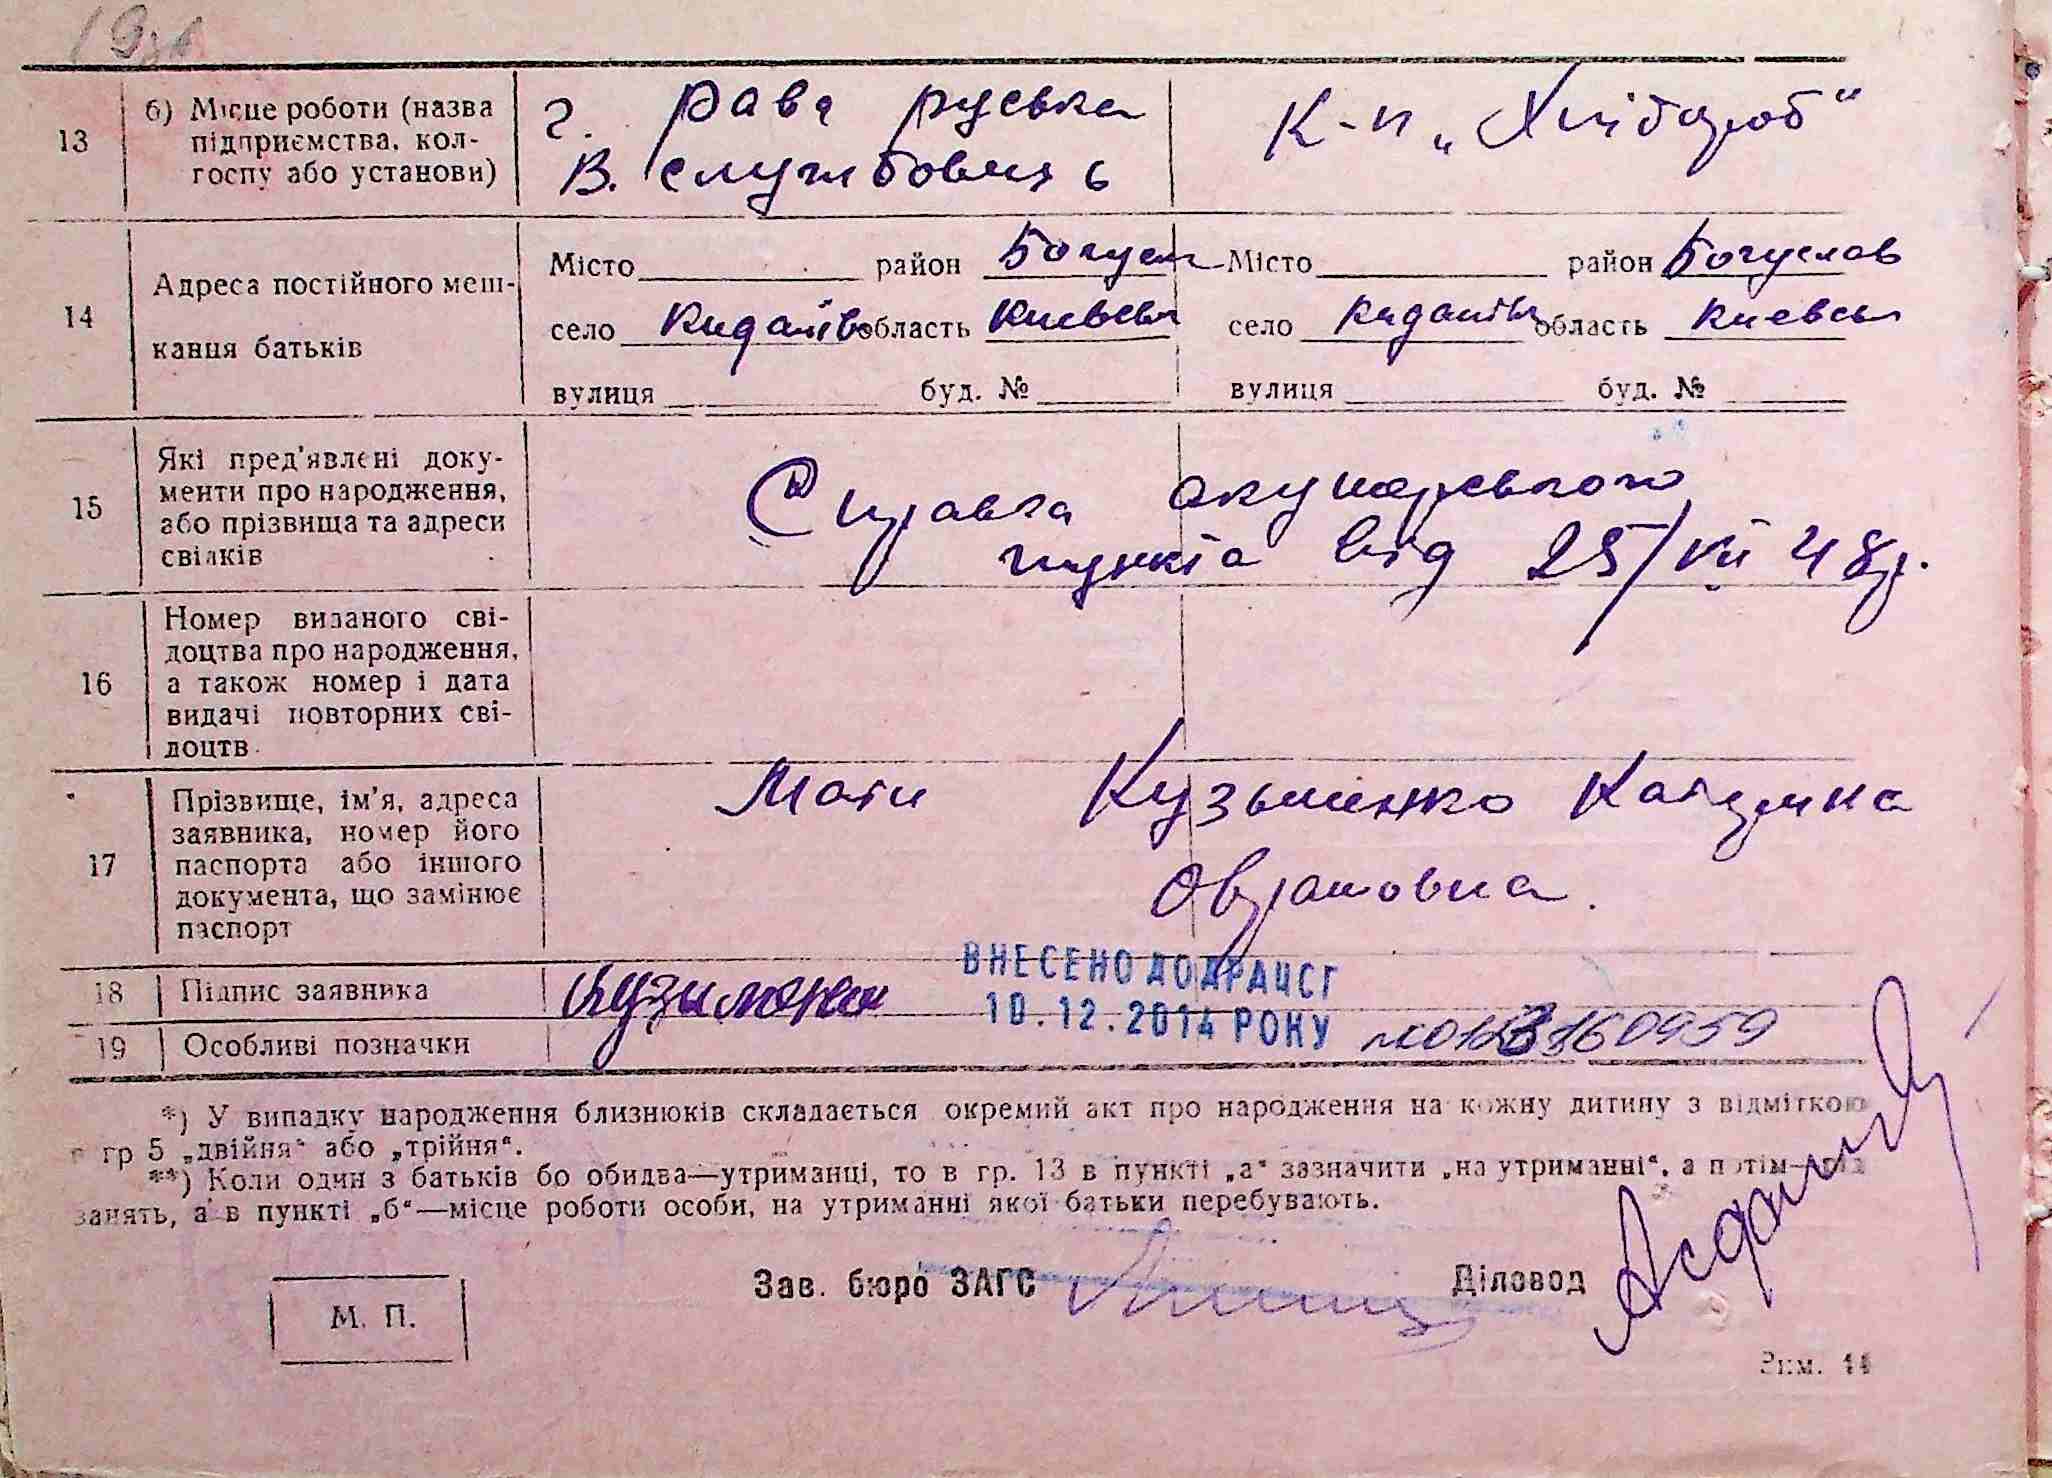 19зв
13
б) Місце роботи (назва
підприємства, кол-
госпу або установи)
г. Рава руська
В. службовець
К-п „Хлібороб“
14
Адреса постійного меш-
кання батьків
Місто район Богусл
село Кидалів область Києвськ
вулиця буд. №
Місто район Богуслав
село Кидалів область Києвськ
вулиця буд. №
15
Які пред'явлені доку-
менти про народження,
або прізвища та адреси
свідків
Справка акушерського
пункта від 25/VII 48р.
16
Номер виданого сві-
доцтва про народження,
а також номер і дата
видачі повторних сві-
доцтв
17
Прізвище, ім'я, адреса
заявника, номер його
паспорта або іншого
документа, що замінює
паспорт
Мати Кузьменко Катерина
Оврамовна.
18
Підпис заявника
ВНЕСЕНО ДО ДРАЦСГ
10.12.2014 РОКУ
19
Особливі позначки
*) У випадку народження близнюків складається окремий акт про народження на кожну дитину з відміткою
в гр 5 „двійня“ або „трійня“.
**) Коли один з батьків бо обидва—утриманці, то в гр. 13 в пункті „а“ зазначити „на утриманні“, а потім—рід
занять, а в пункті „б“—місце роботи особи, на утриманні якої батьки перебувають.
М. П.
Зав. бюро ЗАГС
Діловод
Зим. 44